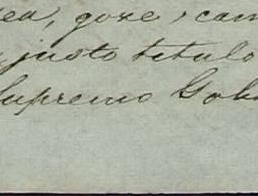 ea, goze, cam
justo titulo
Supremo Gob